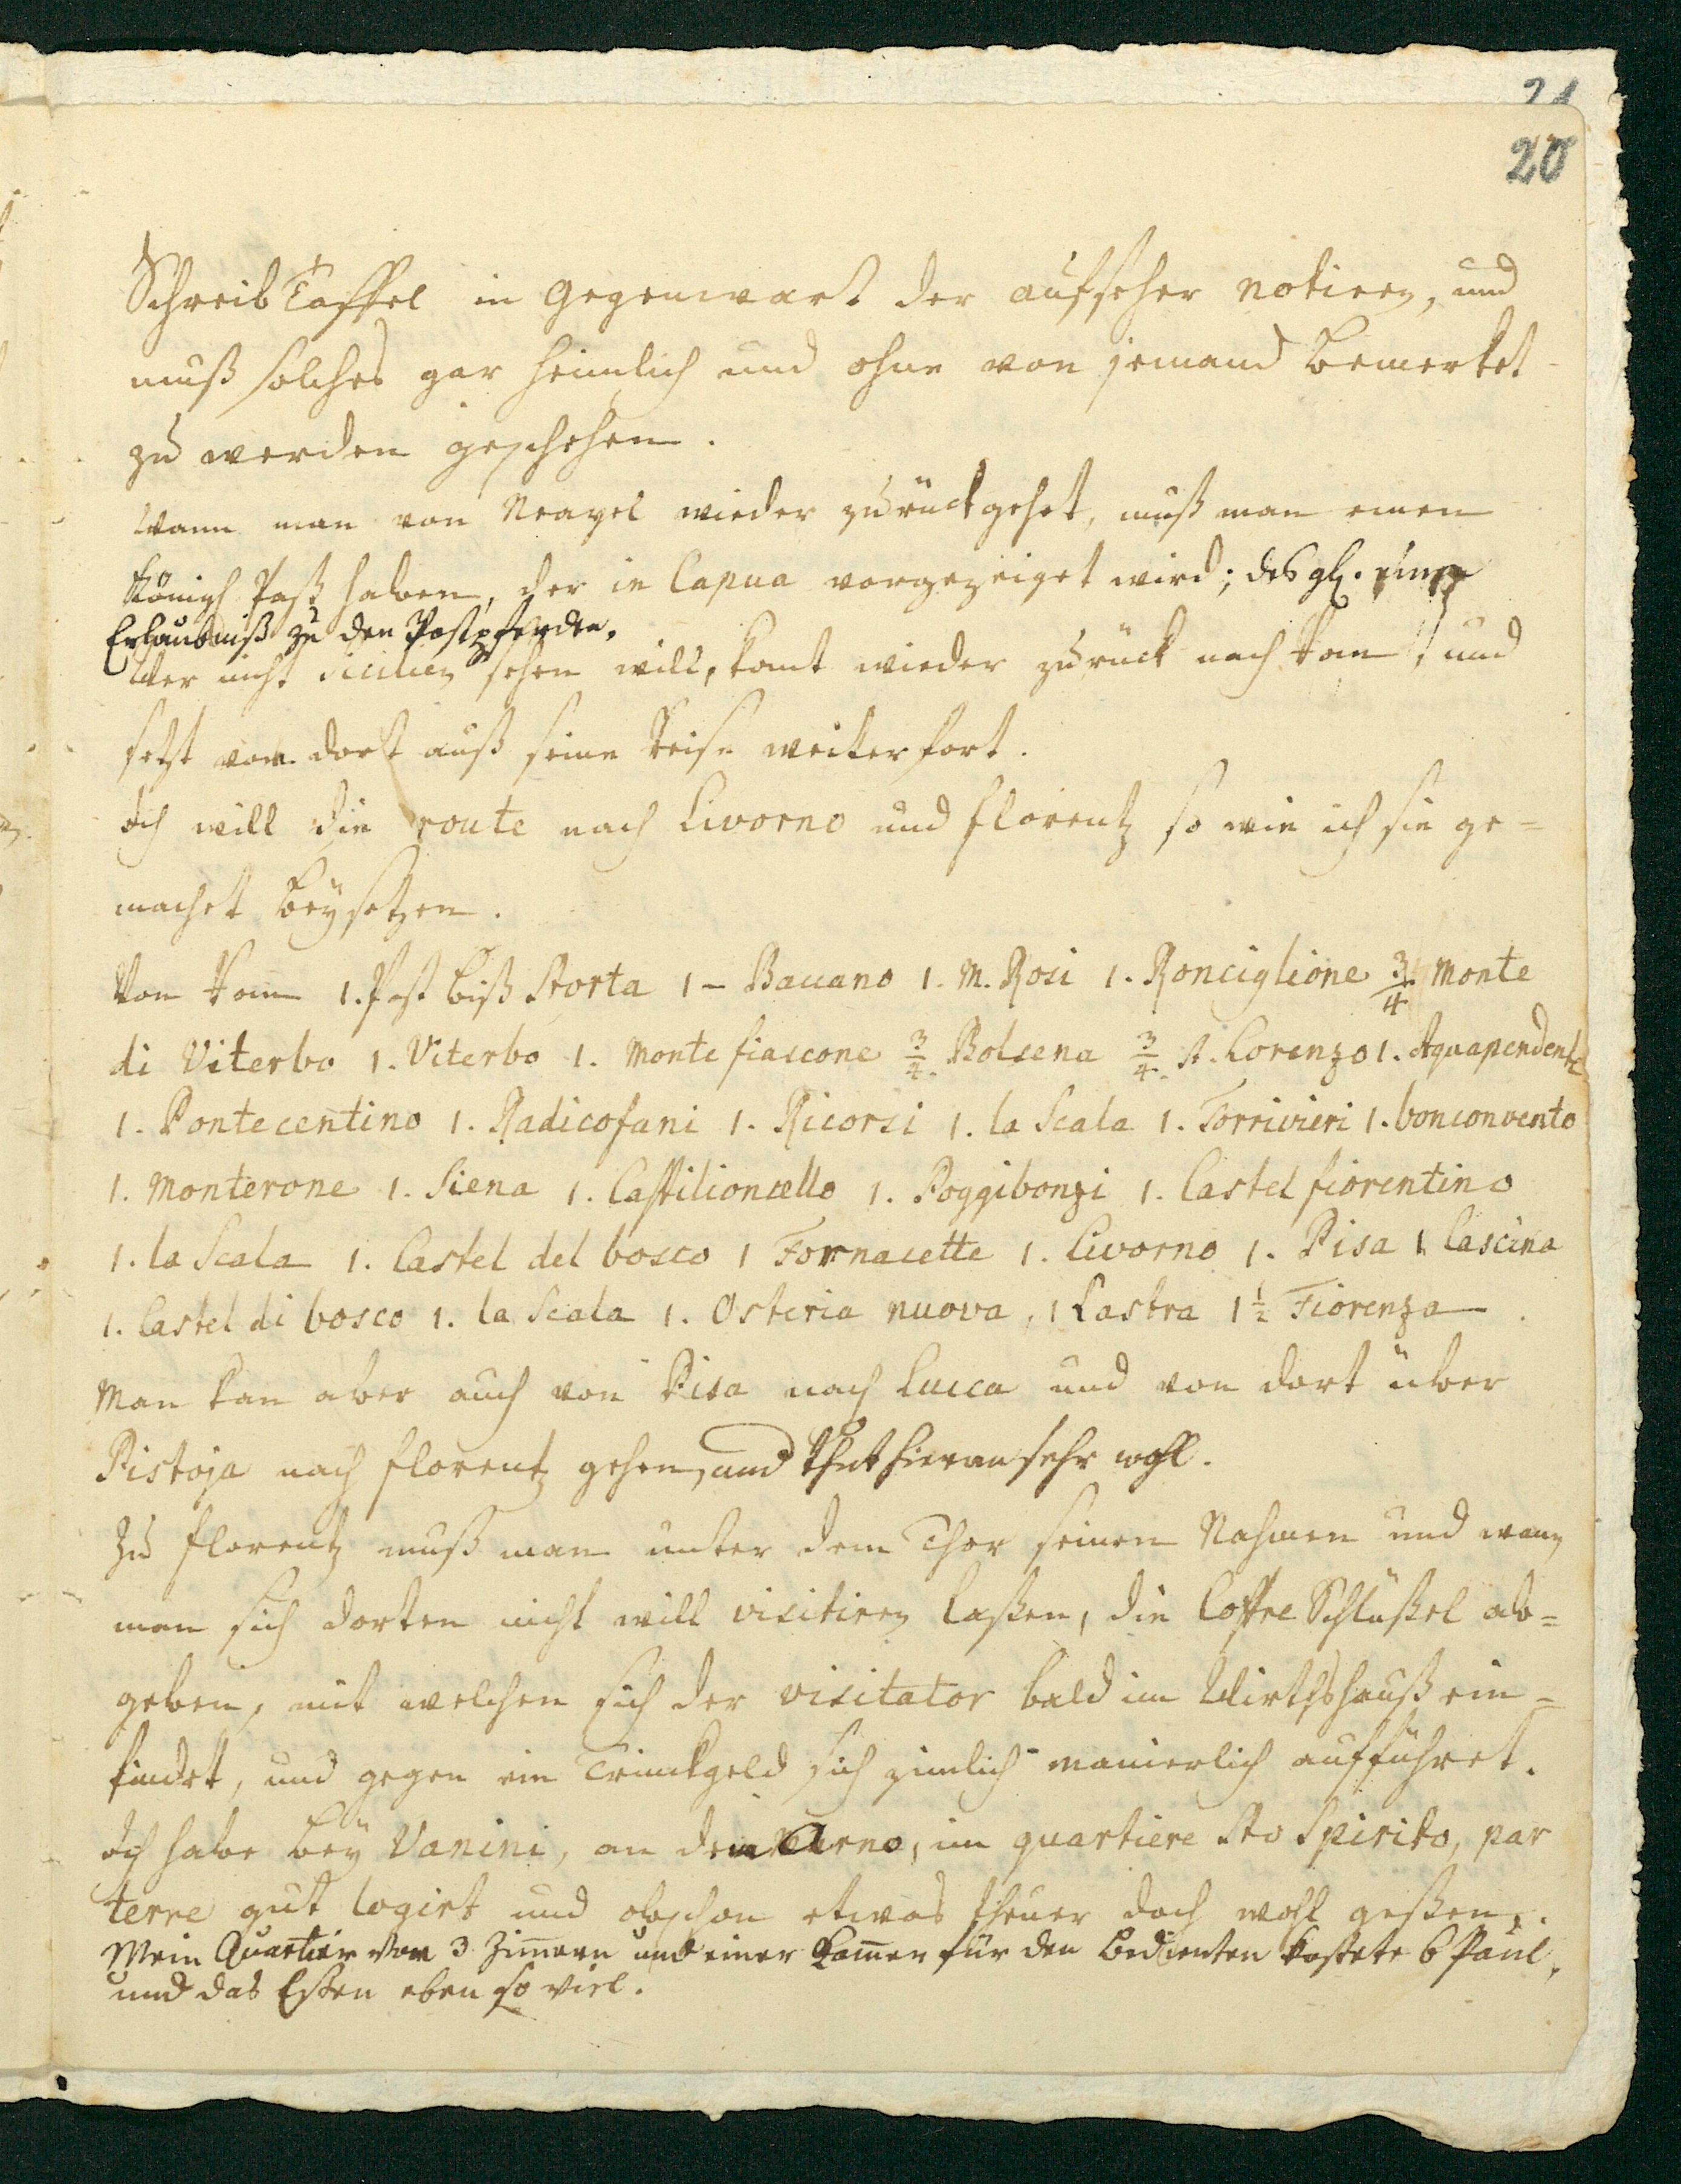 21
20
Schreib Taffel in gegenwart der aufseher notiren, und
muß solches gar heimlich und ohne von jemand bemerket
zu werden geschehen.
Wann man von Neapel wieder zurückgehet, muß man einen
Königl Paß haben, der in Capua vorgezeiget wird; desgl. eine
Erlaubniß zu den Postpferden.
Wer nicht Sicilien sehen will, komt wieder zurück nach Rom, und
setzt von dort auß seine Reise weiter fort.
Ich will die route nach Livorno und Florentz so wie ich sie ge=
machet beysetzen.
Von Rom 1. Post biß Storta 1 - Baccano 1. M. Rosi 1. Ronciglione 3/4. Monte
di Viterbo 1. Viterbo 1. Monte fiascone 3/4. Bolsena 3/4. St. Lorenzo 1. Aquapendente
1. Pontecentino 1. Radicofani 1. Ricorsi 1. la Scala 1. Torrivieri 1. bonconvento
1. Monterone 1. Siena 1. Castilioncello 1. Poggibonzi 1. Castel fiorentino
1. la Scala 1. Castel del bosco 1 Fornacette 1. Livorno 1. Pisa 1. Cascina
1. Castel di bosco 1. la Scala 1. Osteria nuova, 1 Lastra 1 1/2 Fiorenza.
Man kan aber auch von Pisa nach Lucca und von dort über
Pistoja nach Florentz gehen, und thut hieran sehr wohl.
Zu Florentz muß man unter dem Thor seinen Nahmen und wann
man sich dorten nicht will visitiren laßen, die Coffre Schlüßel ab=
geben, mit welchen sich der visitator bald im Wirthshauß ein=
findet, und gegen ein Trinckgeld sich zimlich manierlich aufführet.
Ich habe bey Vanini, an dem Arno, im quartiere Sto Spirito, par
terre gut logirt und obschon etwas theuer doch wohl geßen.
Mein Quartier von 3 Zim̄ern und einer Kam̄er für den Bedienten kostete 6 Paul,
und das Eßen eben so viel.